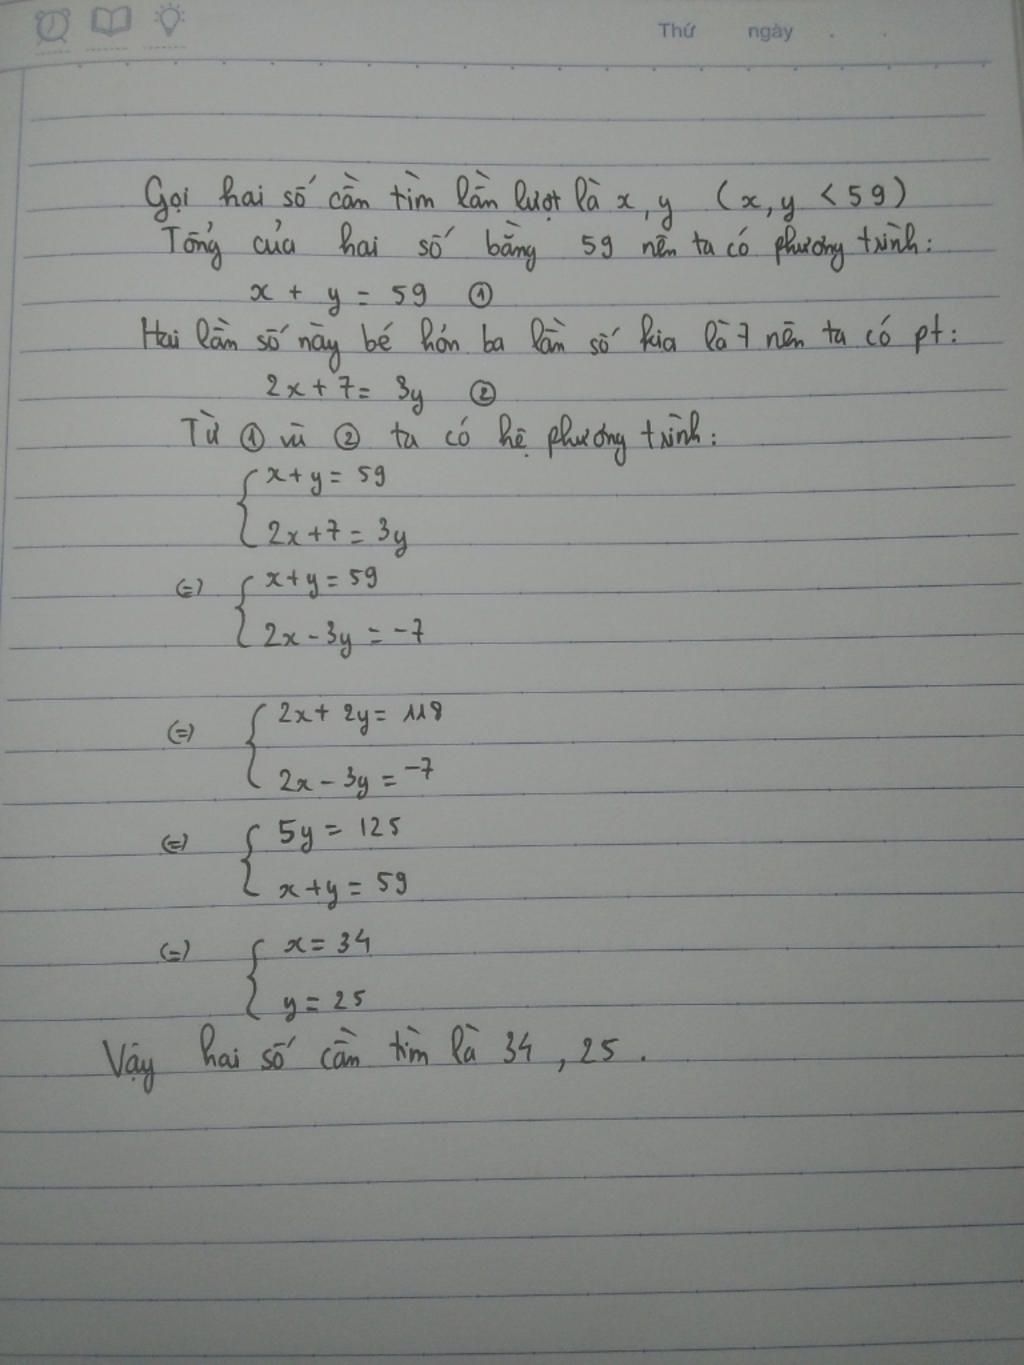 Thứ ngày . .
Gọi hai số cần tìm lần lượt là x, y (x, y < 59)
Tổng của hai số bằng 59 nên ta có phương trình:
x + y = 59 ①
Hai lần số này bé hơn ba lần số kia là 7 nên ta có pt:
2x + 7 = 3y ②
Từ ① và ② ta có hệ phương trình:
{ x + y = 59
2x + 7 = 3y
(=) { x + y = 59
2x - 3y = -7
(=) { 2x + 2y = 118
2x - 3y = -7
(=) { 5y = 125
x + y = 59
(=) { x = 34
y = 25
Vậy hai số cần tìm là 34 , 25 .